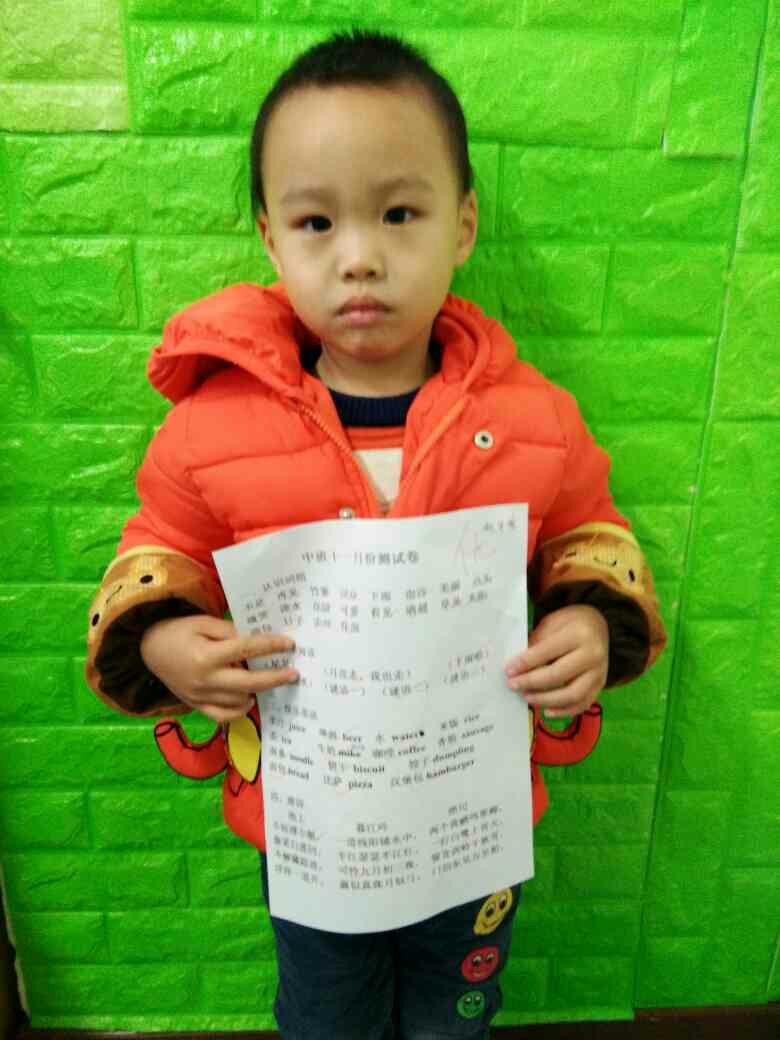 优
中班十一月份测试卷
一、认识词组
再见 竹篓 下雨 美丽 点头
微笑 浇水 可爱 看见 唱歌
（月亮走，我也走） （下雨啦）
（谜语一）（谜语二）（谜语三）
果汁 juice 啤酒 beer 水 water 米饭 rice
茶 tea 牛奶 milke 咖啡 coffee 香肠 sausage
面条 noodle 饼干 biscuit 饺子 dumpling
面包 bread 比萨 pizza 汉堡包 hamburger
四、唐诗
池上 暮江吟 绝句
小娃撑小艇， 一道残阳铺水中， 两个黄鹂鸣翠柳，
偷采白莲回， 半江瑟瑟半江红， 一行白鹭上青天，
不解藏踪迹， 可怜九月初三夜， 窗含西岭千秋雪，
浮萍一道开。 露似真珠月似弓。 门泊东吴万里船。